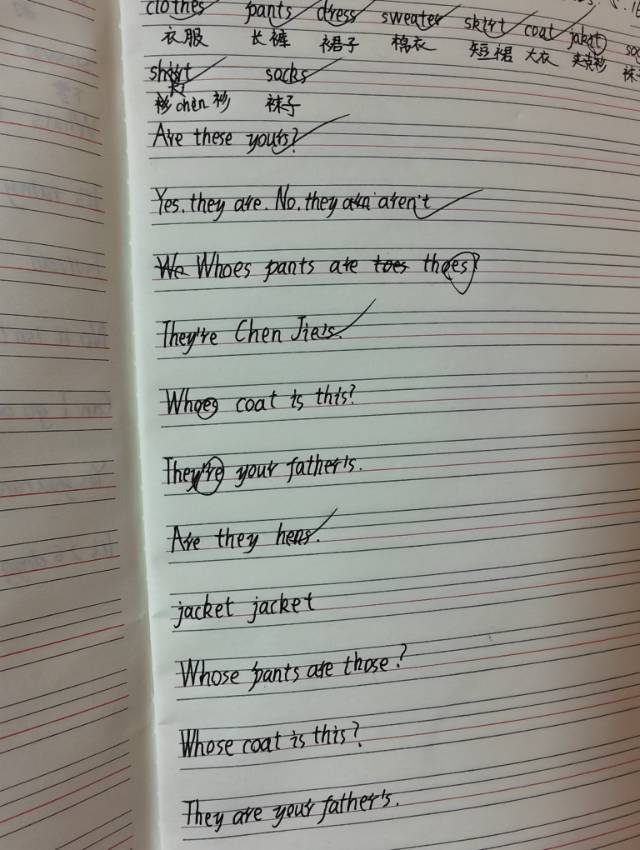 clothes pants dress sweater skirt coat jaket
衣服 长裤 裙子 棉衣 短裙 大衣 夹克衫
shirt socks
衫 chen 衫 袜子
Are these yours?
Yes, they are. No, they aren't
Whoes pants are thoes?
They're Chen Jie's.
Whoes coat is this?
They're your father's.
Are they hens.
jacket jacket
Whose pants are those?
Whose coat is this?
They are your father's.